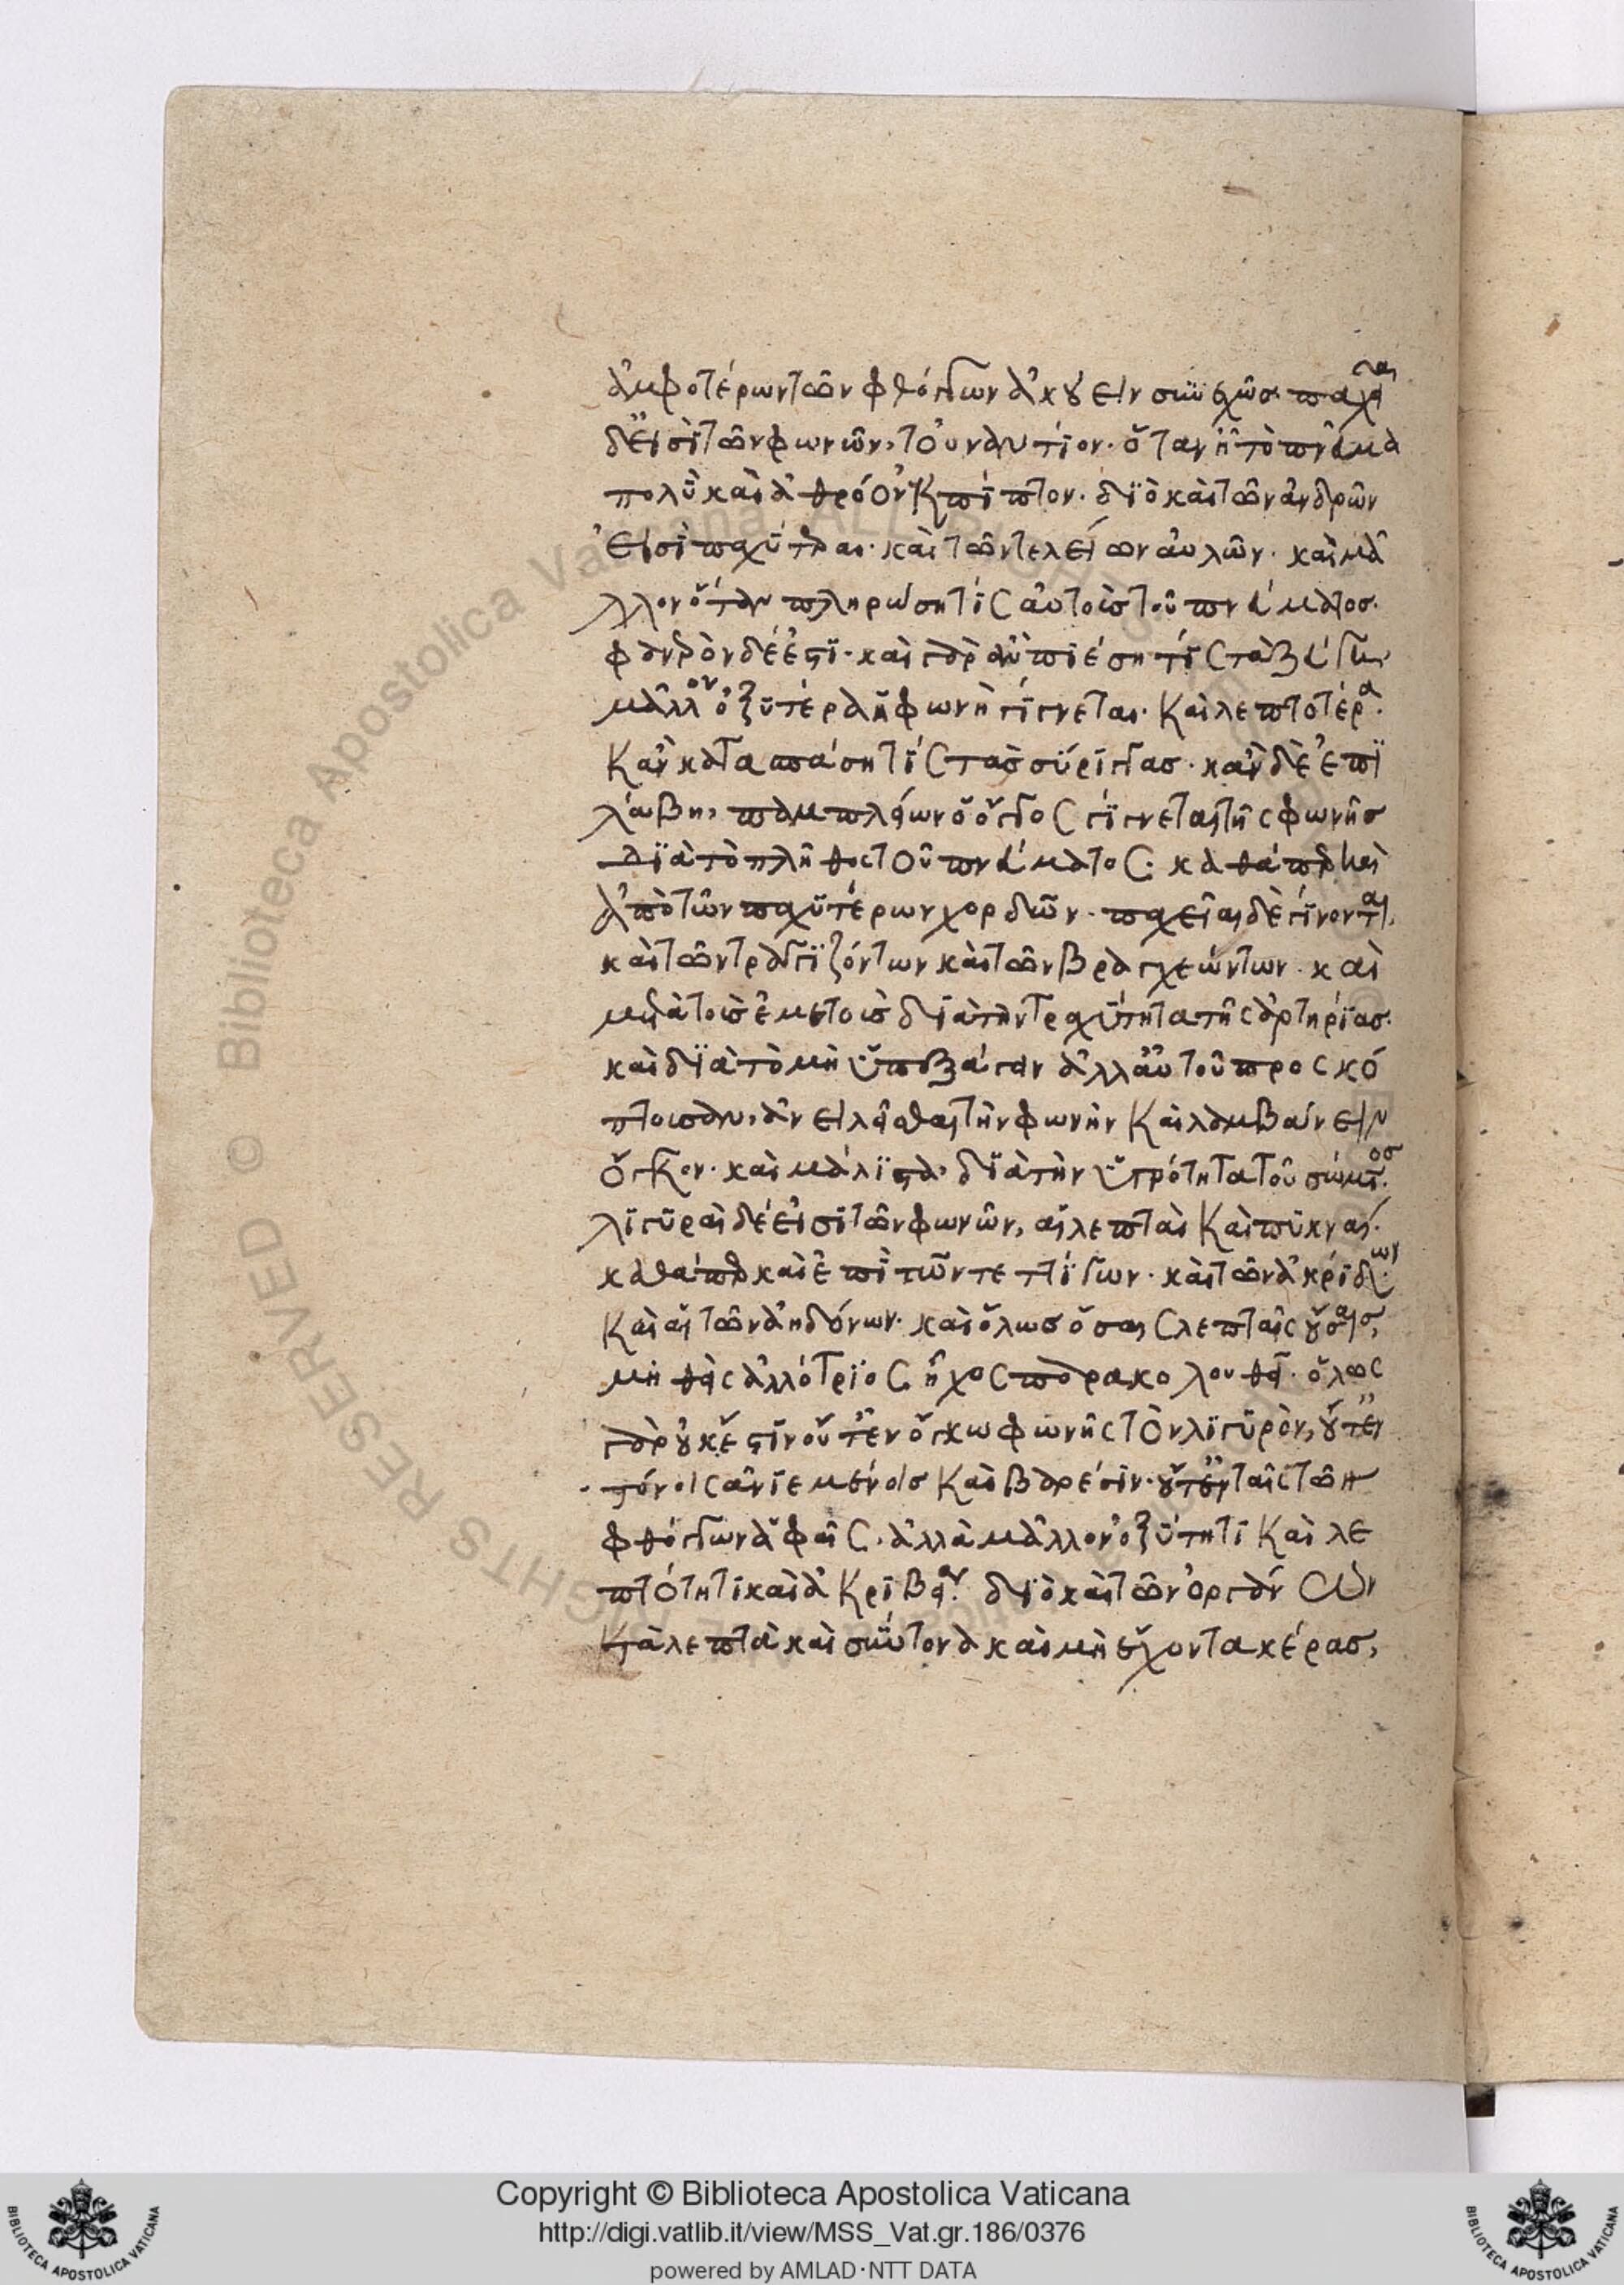 ἀμφοτέρων τῶν φθόγγων ἀκούειν συνεχῶς. παχεῖαι
δ' εἰσὶ τῶν φωνῶν, τοὐναντίον. ὅταν ἦ τὸ πνεῦμα
πολὺ καὶ ἀθρόον ἐκπίπτον. διὸ καὶ τῶν ἀνδρῶν
εἰσὶ παχύτεραι. καὶ τῶν τελείων αὐλῶν. καὶ μᾶ
λλον ὅταν πληρώση τὶς αὐτοὺς τοῦ πνεύματος.
φανερὸν δέ ἐστι. καὶ γὰρ ἂν πιέση τίς τὰ ζεύγη,
μᾶλλον ὀξυτέρα ἡ φωνὴ γίγνεται. καὶ λεπτοτέρα.
κἂν κατασπάση τίς τὰς σύριγγας. κἂν δὲ ἐπι
λάβη, παμπλείων ὁ ὄγκος γίγνεται τῆς φωνῆς
διὰ τὸ πλῆθος τοῦ πνεύματος. καθάπερ καὶ
ἀπὸ τῶν παχυτέρων χορδῶν. παχεῖαι δὲ γίνονται,
καὶ τῶν τραγιζόντων καὶ τῶν βραγχιώντων. καὶ
μετὰ τοὺς ἐμέτους διὰ τὴν τραχύτητα τῆς ἀρτηρίας.
καὶ διὰ τὸ μὴ ὑπεξάγειν ἀλλ' αὐτοῦ προσκό
πτουσαν, ἀνειλεῖσθαι τὴν φωνὴν καὶ λαμβάνειν
ὄγκον. καὶ μάλιστα διὰ τὴν ὑγρότητα τοῦ σώματος.
λιγυραὶ δέ εἰσι τῶν φωνῶν, αἱ λεπταὶ καὶ πυκναί.
καθάπερ καὶ ἐπὶ τῶν τεττίγων. καὶ τῶν ἀκρίδων.
καὶ αἱ τῶν ἀηδόνων. καὶ ὅλως ὅσαις λεπταῖς οὔσαις,
μηθεὶς ἀλλότριος ἦχος παρακολουθεῖ. ὅλως
γὰρ οὐκ ἔστιν οὔτ' ἐν ὄγκω φωνῆς τὸ λιγυρὸν, οὔτ' ἐν
τόνοις ἀνιεμένοις καὶ βαρέσιν. οὔτ' ἐν ταῖς τῶν
φθόγγων ἁφαῖς. ἀλλὰ μᾶλλον ὀξύτητι καὶ λε
πτότητι καὶ ἀκριβεία. διὸ καὶ τῶν ὀργάνων
τὰ λεπτὰ καὶ σύντονα καὶ μὴ ἔχοντα κέρας,
Copyright © Biblioteca Apostolica Vaticana
http://digi.vatlib.it/view/MSS_Vat.gr.186/0376
powered by AMLAD·NTT DATA